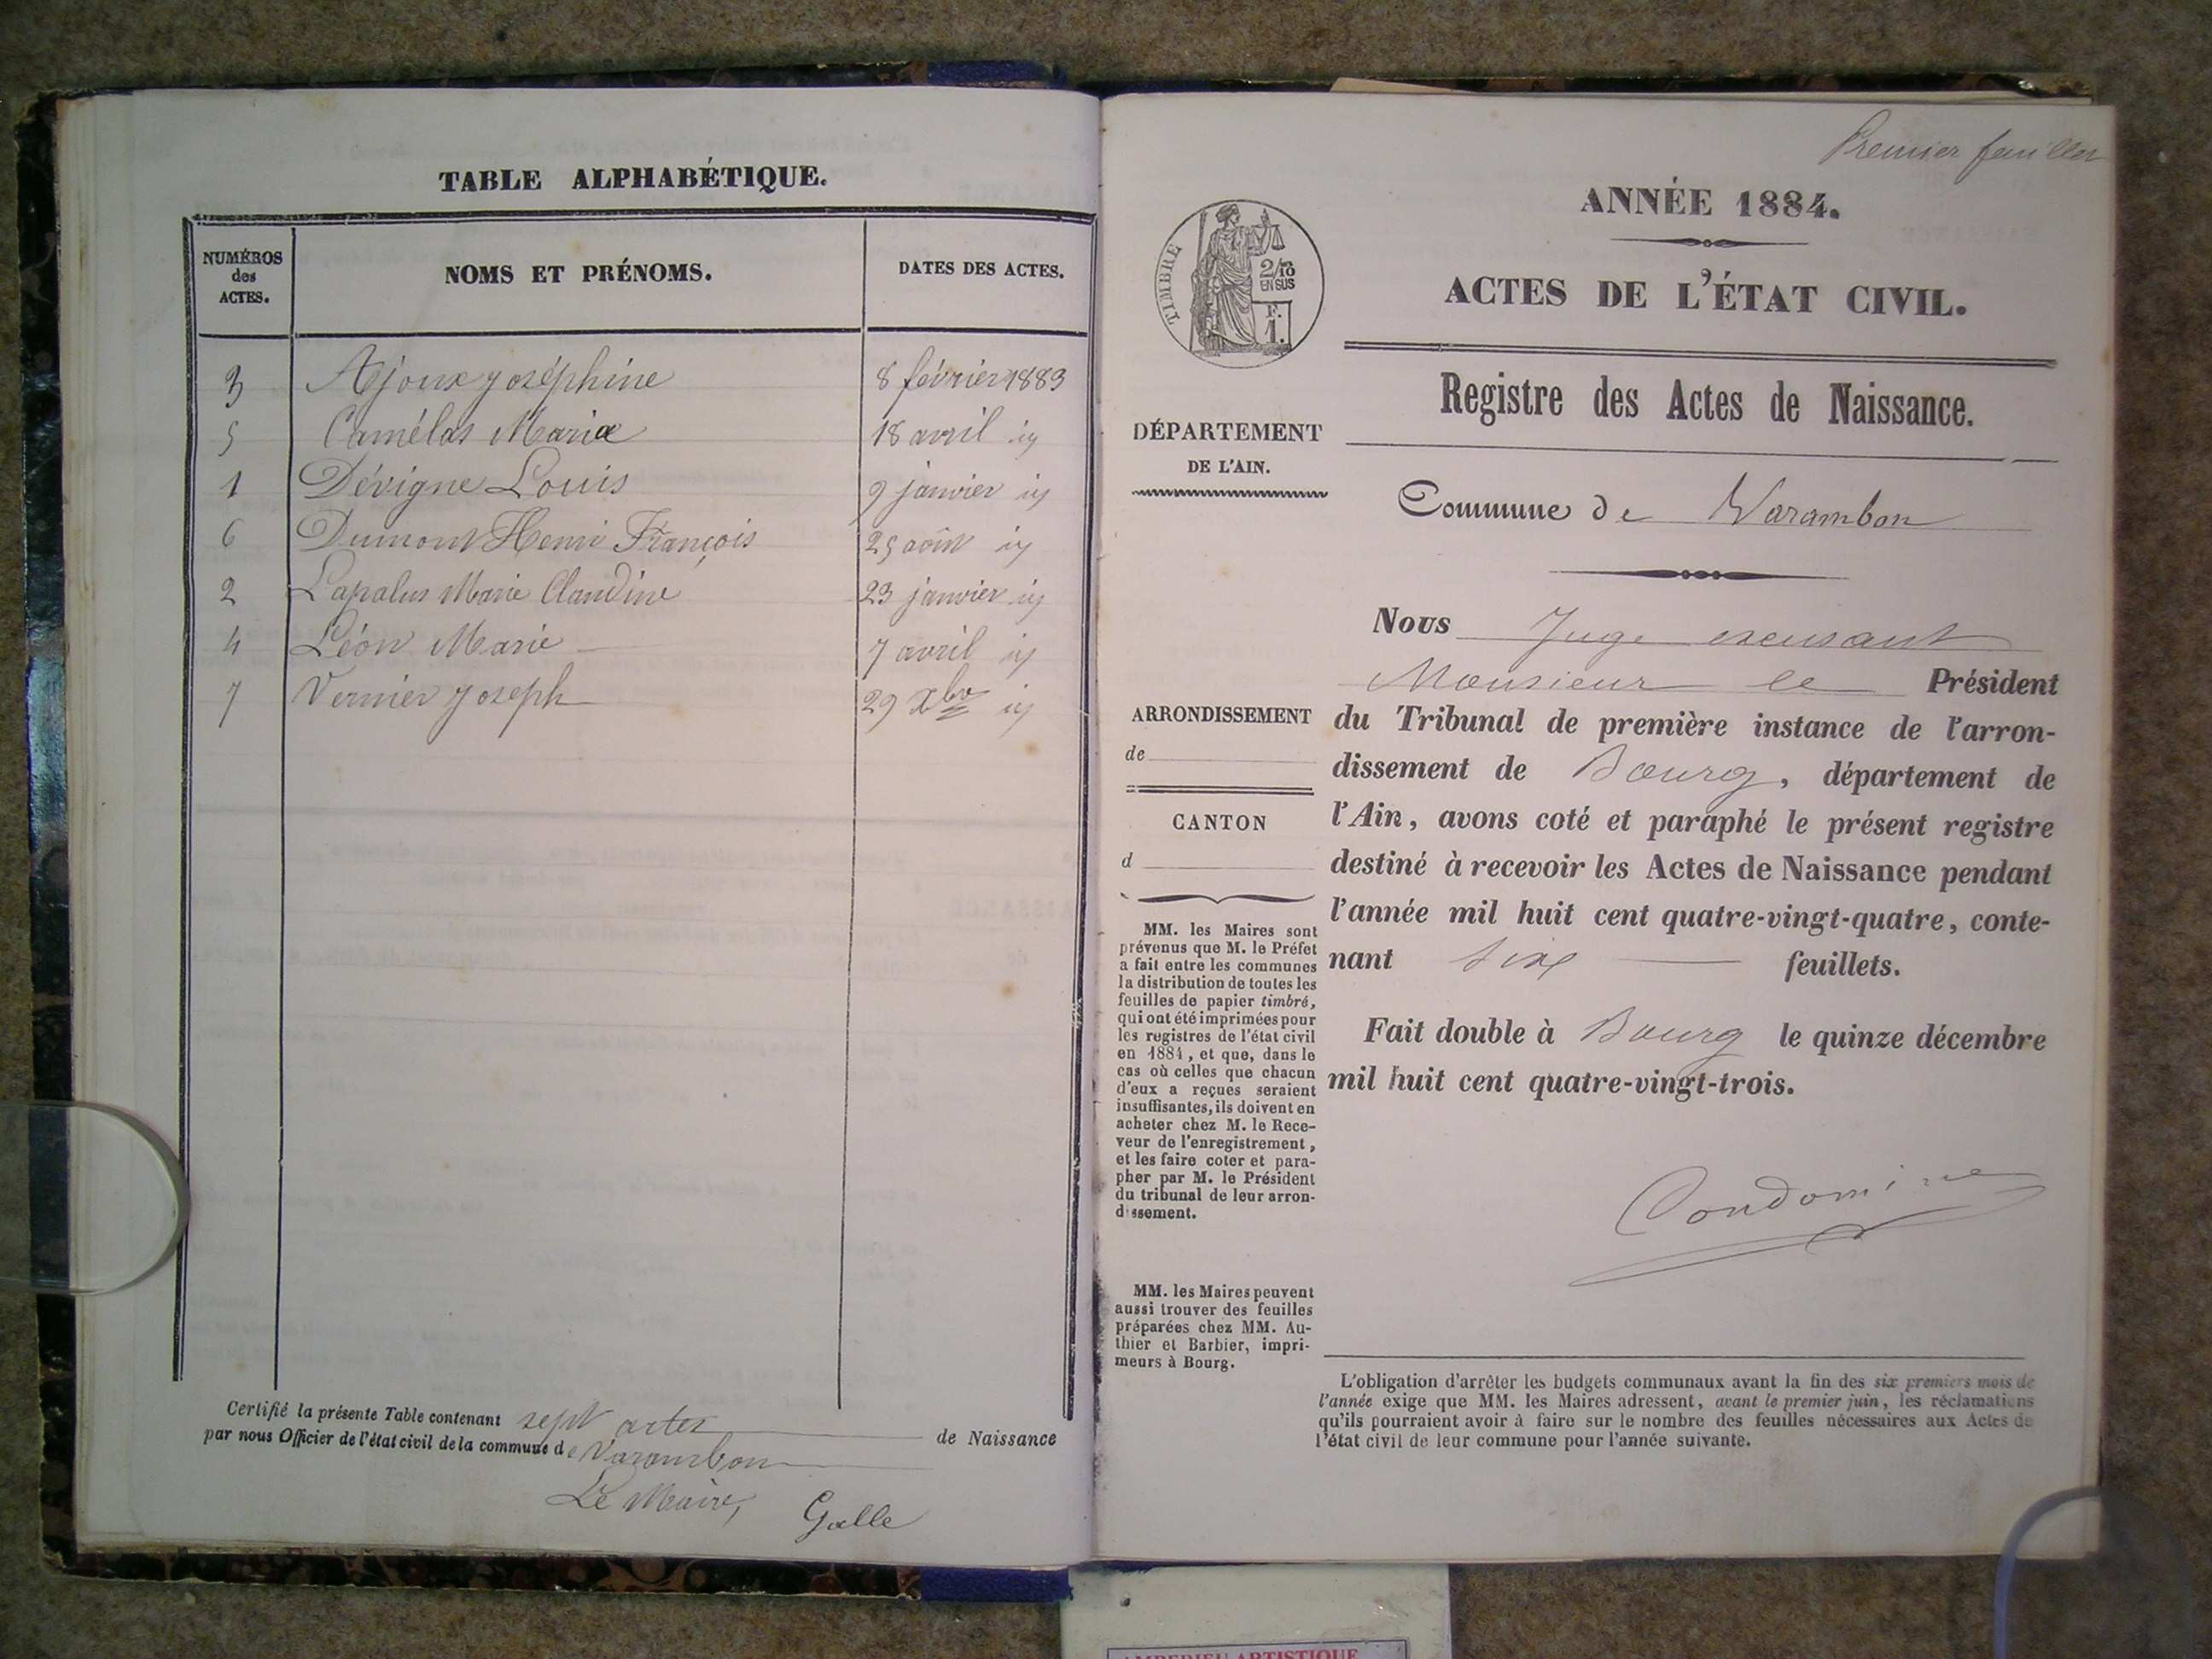 TABLE ALPHABÉTIQUE.
NUMÉROS
des
ACTES.
NOMS ET PRÉNOMS.
DATES DES ACTES.
3 Ajoux Joséphine 8 février 1883
5 Camélas Maria 18 avril id
1 Dévigne Louis 9 janvier id
6 Dumont Henri François 25 août id
2 Lapalus Marie Claudine 23 janvier id
4 Léon Marie 7 avril id
7 Vernier Joseph 29 Xbre id
Certifié la présente Table contenant sept actes de Naissance
par nous Officier de l'état civil de la commune de Varambon
Le Maire, Galle
Premier feuillet
ANNÉE 1884.
ACTES DE L'ÉTAT CIVIL.
Registre des Actes de Naissance.
TIMBRE
2/10
EN SUS
F.
1.
DÉPARTEMENT
DE L'AIN.
Commune de Varambon
Nous Juge excusant
Monsieur le Président
du Tribunal de première instance de l'arron-
dissement de Bourg, département de
l'Ain, avons coté et paraphé le présent registre
destiné à recevoir les Actes de Naissance pendant
l'année mil huit cent quatre-vingt-quatre, conte-
nant six feuillets.
Fait double à Bourg le quinze décembre
mil huit cent quatre-vingt-trois.
Condomine
ARRONDISSEMENT
de
CANTON
d
MM. les Maires sont
prévenus que M. le Préfet
a fait entre les communes
la distribution de toutes les
feuilles de papier timbré,
qui ont été imprimées pour
les registres de l'état civil
en 1884, et que, dans le
cas où celles que chacun
d'eux a reçues seraient
insuffisantes, ils doivent en
acheter chez M. le Rece-
veur de l'enregistrement,
et les faire coter et para-
pher par M. le Président
du tribunal de leur arron-
dissement.
MM. les Maires peuvent
aussi trouver des feuilles
préparées chez MM. Au-
thier et Barbier, impri-
meurs à Bourg.
L'obligation d'arrêter les budgets communaux avant la fin des six premiers mois de
l'année exige que MM. les Maires adressent, avant le premier juin, les réclamations
qu'ils pourraient avoir à faire sur le nombre des feuilles nécessaires aux Actes de
l'état civil de leur commune pour l'année suivante.